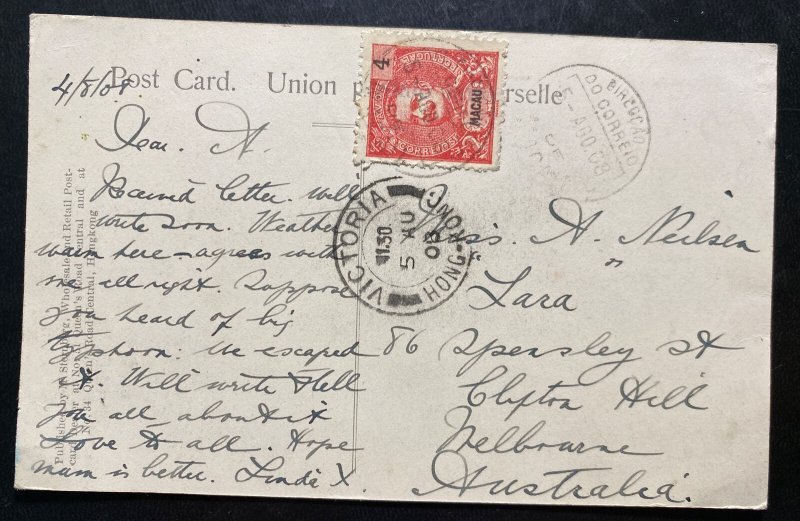 Post Card. Union p rselle
4/8/08
Dear A.
Received letter. will
write soon. Weather
warm here - agrees with
me all right. Suppose
you heard of big
typhoon: We escaped
it. Will write & tell
you all about it
Love to all. Hope
mum is better. Linda X.
Miss A. Neilsen
"Lara"
86 Spensley St
Clifton Hill
Melbourne
Australia.
4
MACAU
VICTORIA
11.30
5 AU
08
HONG-KONG
DIRECÇÃO
DO CORREIO
5-AGO.08
Published by M. Sternberg, Wholesale and Retail Post-
card Dealer at No. 51 Queen's Road Central and at
No. 34 Queen's Road Central, Hongkong